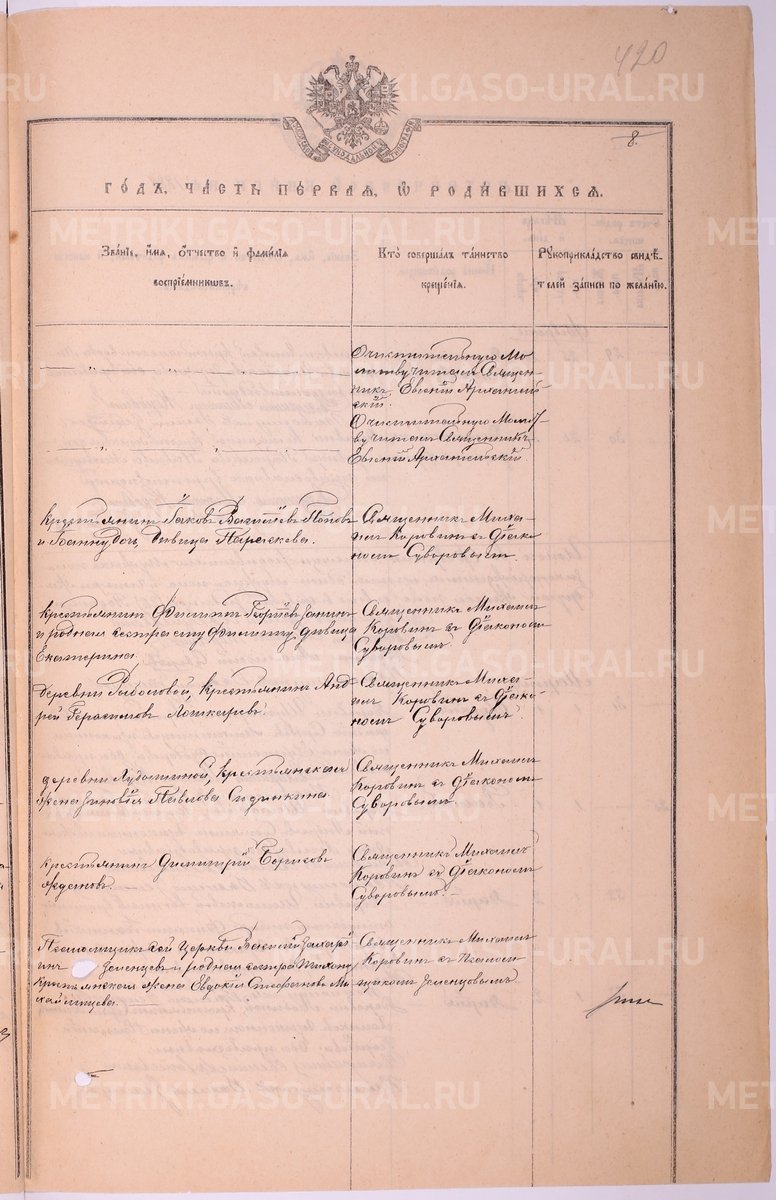 420
8.
МОСКОВСК. СѴНОДАЛЬНОЙ ТИПОГРАФІИ
ГОДЪ, ЧАСТЬ ПЕРВАЯ, Ѡ РОДИВШИХСЯ.
Званіе, имя, отчество и фамилія
воспріемниковъ.
Кто совершалъ таинство
крещенія.
Рукоприкладство свидѣ-
телей записи по желанію.
Очистительную Мо
литву читалъ Священ-
никъ Евгеній Архангель
скій.
Очистительную Молит-
ву читалъ Священникъ
Евгеній Архангельскій.
Крестьянинъ Іаковъ Васильевъ Поповъ
и дѣвица Параскева.
Священникъ Миха-
илъ Коровинъ съ Діако-
номъ Суворовымъ.
Крестьянинъ Филиппъ Георгіевъ
и родная сестра ему Филиппу, дѣвица
Екатерина.
Священникъ Михаилъ
Коровинъ съ Діакономъ
Суворовымъ.
Деревни крестьянинъ Анд-
рей Герасимовъ Лошкаревъ.
Священникъ Миха-
илъ Коровинъ съ Діако-
номъ Суворовымъ.
деревни крестьянская
жена Зиновія Павлова
Священникъ Михаилъ
Коровинъ съ Діакономъ
Суворовымъ.
Крестьянинъ Димитрій Борисовъ
Ждановъ.
Священникъ Михаилъ
Коровинъ съ Діакономъ
Суворовымъ.
Псаломщикъ сей Церкви Василій Захарь
инъ Зеленцевъ и родная сестра
Крестьянская жена Евдокія Стефанова Ми
хайлищева.
Священникъ Михаилъ
Коровинъ съ Псалом-
щикомъ Зеленцовымъ.
METRIKI.GASO-URAL.RU